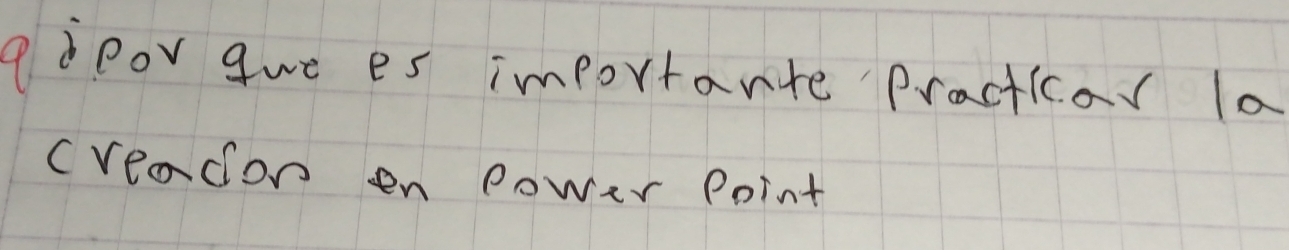 9 ¿por que es importante practicar la
creacion en power point